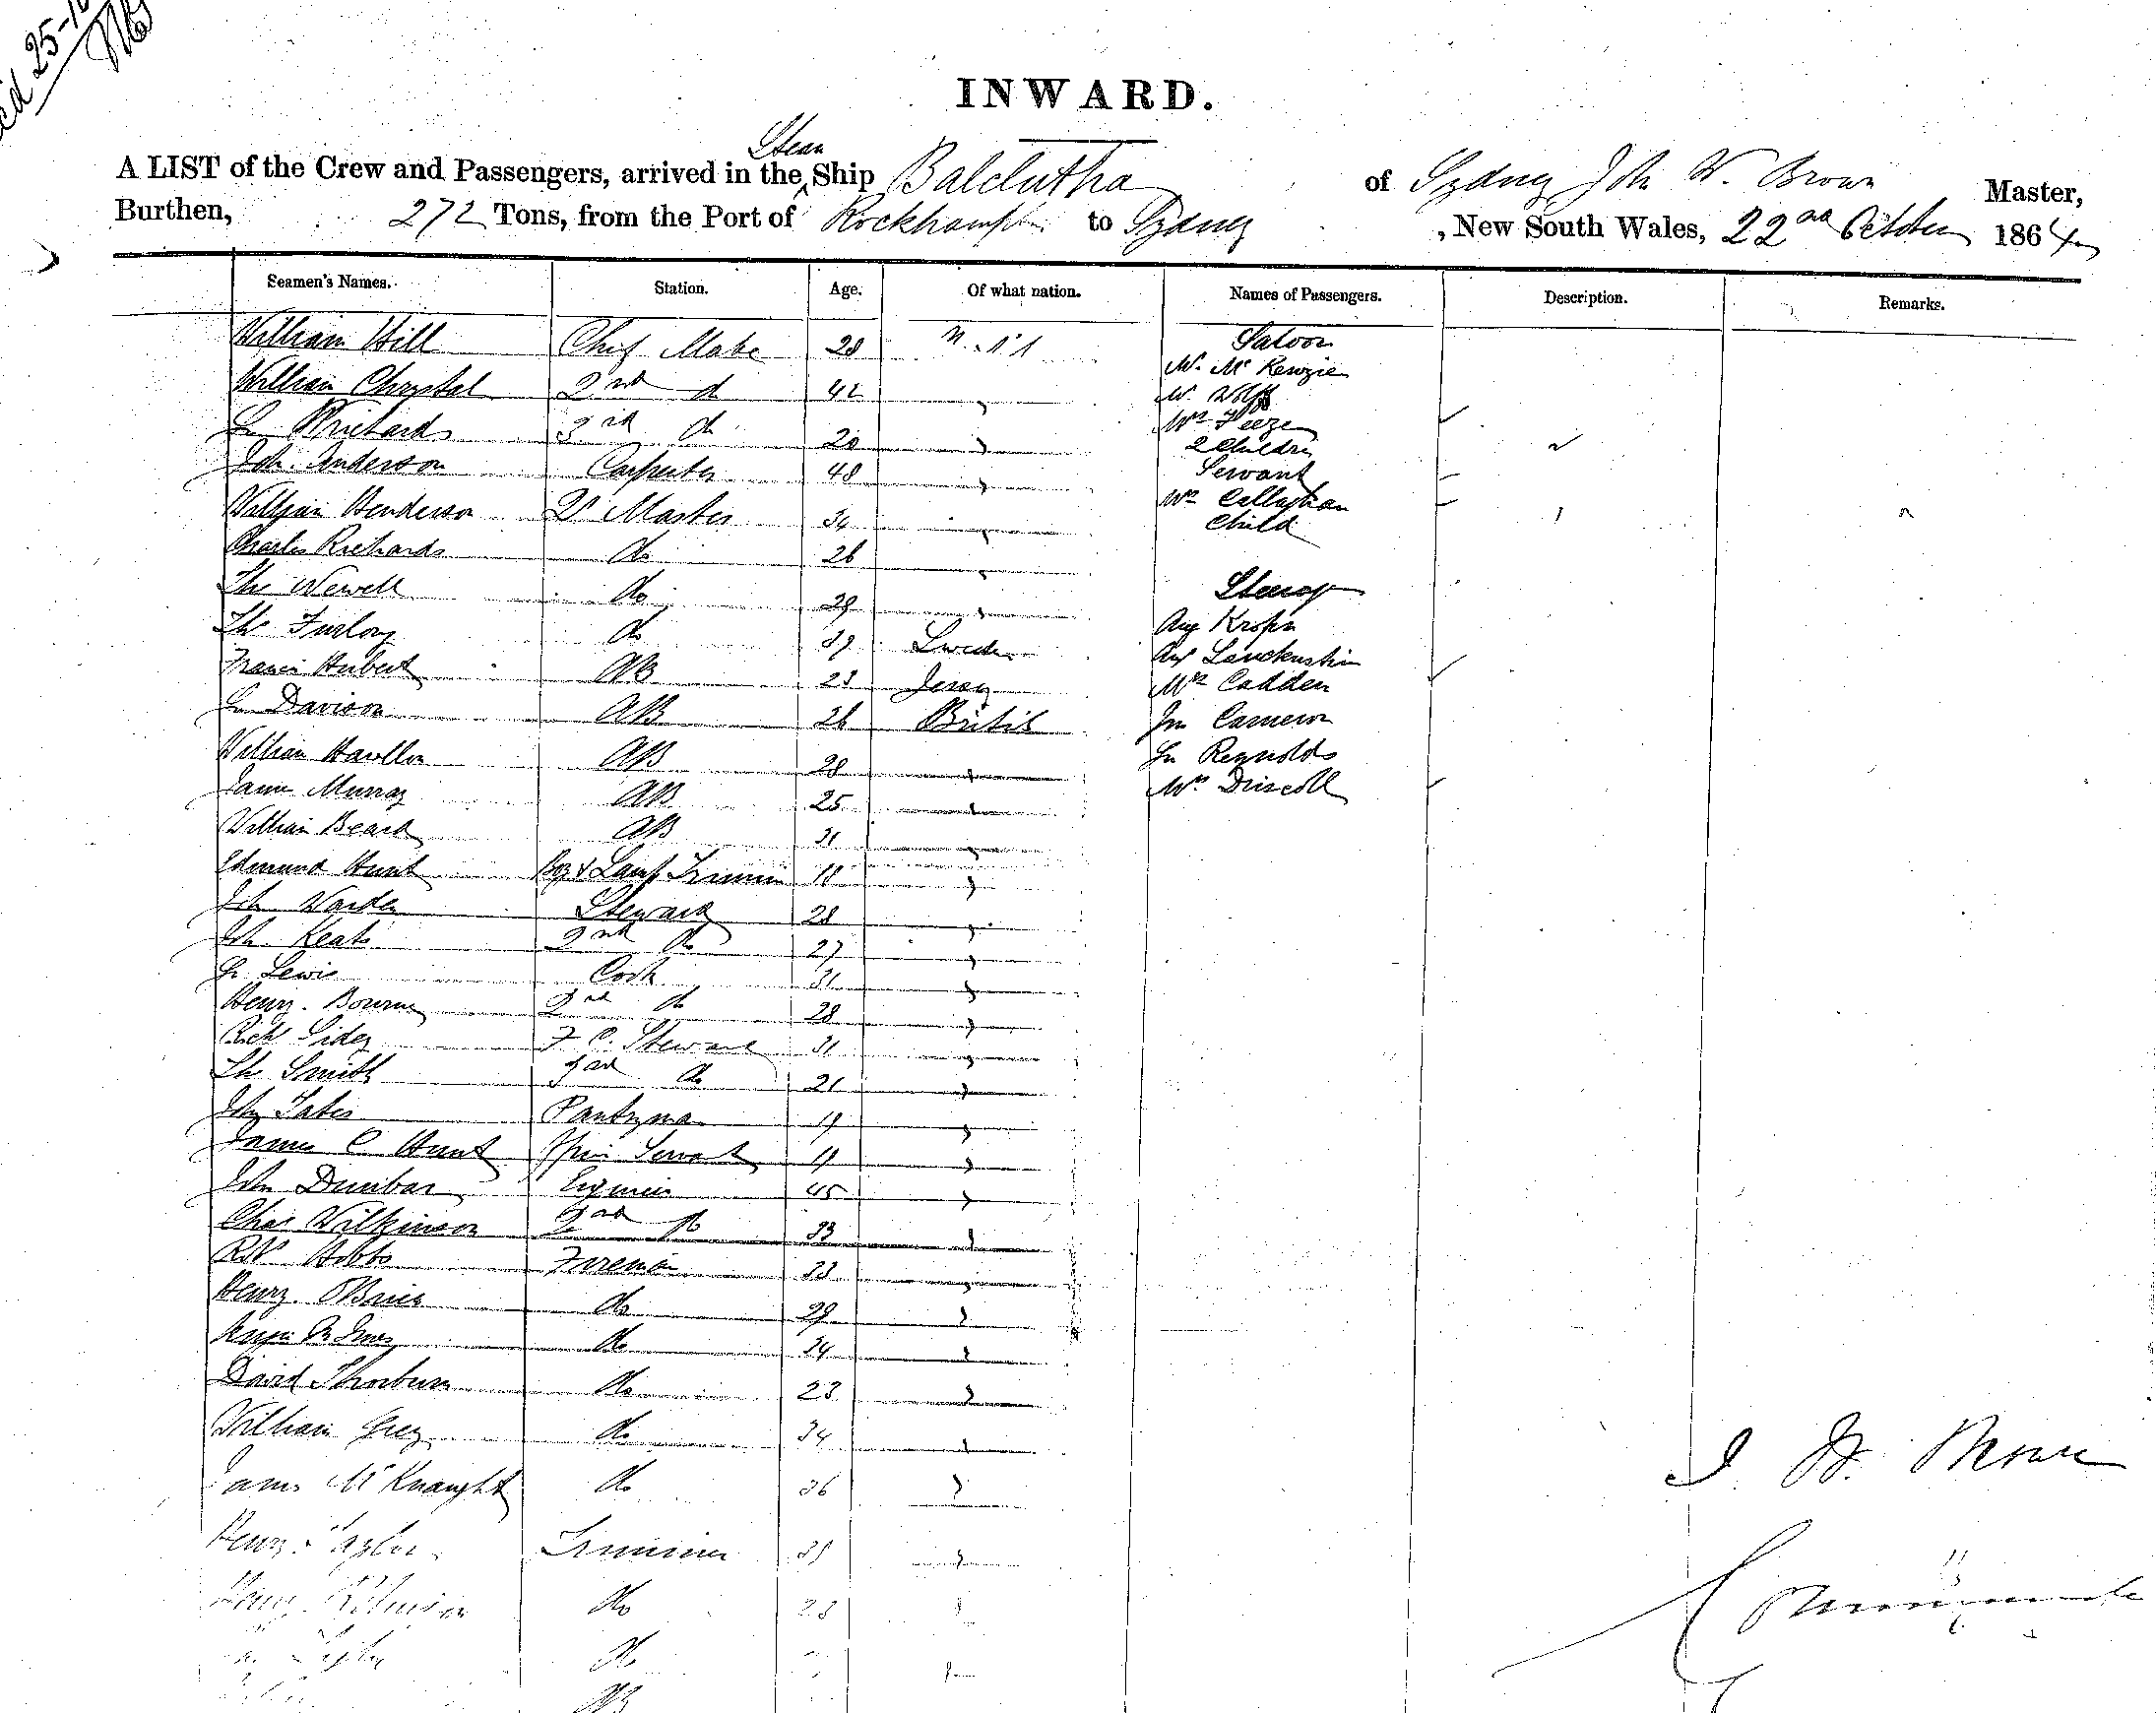 25-10
INWARD.
A LIST of the Crew and Passengers, arrived in the Steam Ship Balclutha of Sydney John W. Brown Master,
Burthen, 272 Tons, from the Port of Rockhampton to Sydney, New South Wales, 22nd October 1864
Seamen's Names. Station. Age. Of what nation. Names of Passengers. Description. Remarks.
William Hill Chief Mate 28 Saloon
Mr McKenzie
William Chrystal 2nd do 42 " W. Wolff
Prichards 3rd do 20 " Mrs Feeze
2 Children
Joh. Anderson Carpenter 48 " Servant
William Henderson Qr Master 34 " Mrs Callaghan
Child
Charles Richards do 26 "
Tho Newell do 29 " Steerage
Tho Furlong do 39 Sweden Aug Kropn
Francis Hubert AB 23 Jersey Aug
Mrs Cadden
Jn Davison AB 26 British Jn Cameron
William AB 28 " Jn Reynolds
James Murray AB 25 " Mrs Driscoll
William Beard AB 31 "
Edmund Hunt Boy & Lamp Trimmer 18 "
Joh Warden Steward 28 "
Joh Keats 2nd do 27 "
Jn Lewis Cook 31 "
Henry Bourne 2nd do 28 "
Rich Sidey F C Steward 31 "
Tho Smith 2nd do 21 "
John Yates Pantryman 19 "
James C Hunt Servant 19 "
John Dunbar Engineer 45 "
Chas Wilkinson 2nd do 33 "
Robt Hobbs Fireman 33 "
Henry OBrien do 29 "
do 34 "
David Thorburn do 23 "
William Grey do 34 "
James McKnaught do 36 "
Henry Taylor Trimmer 35 "
Henry Robinson do 28 "
Taylor do "
J W Brown